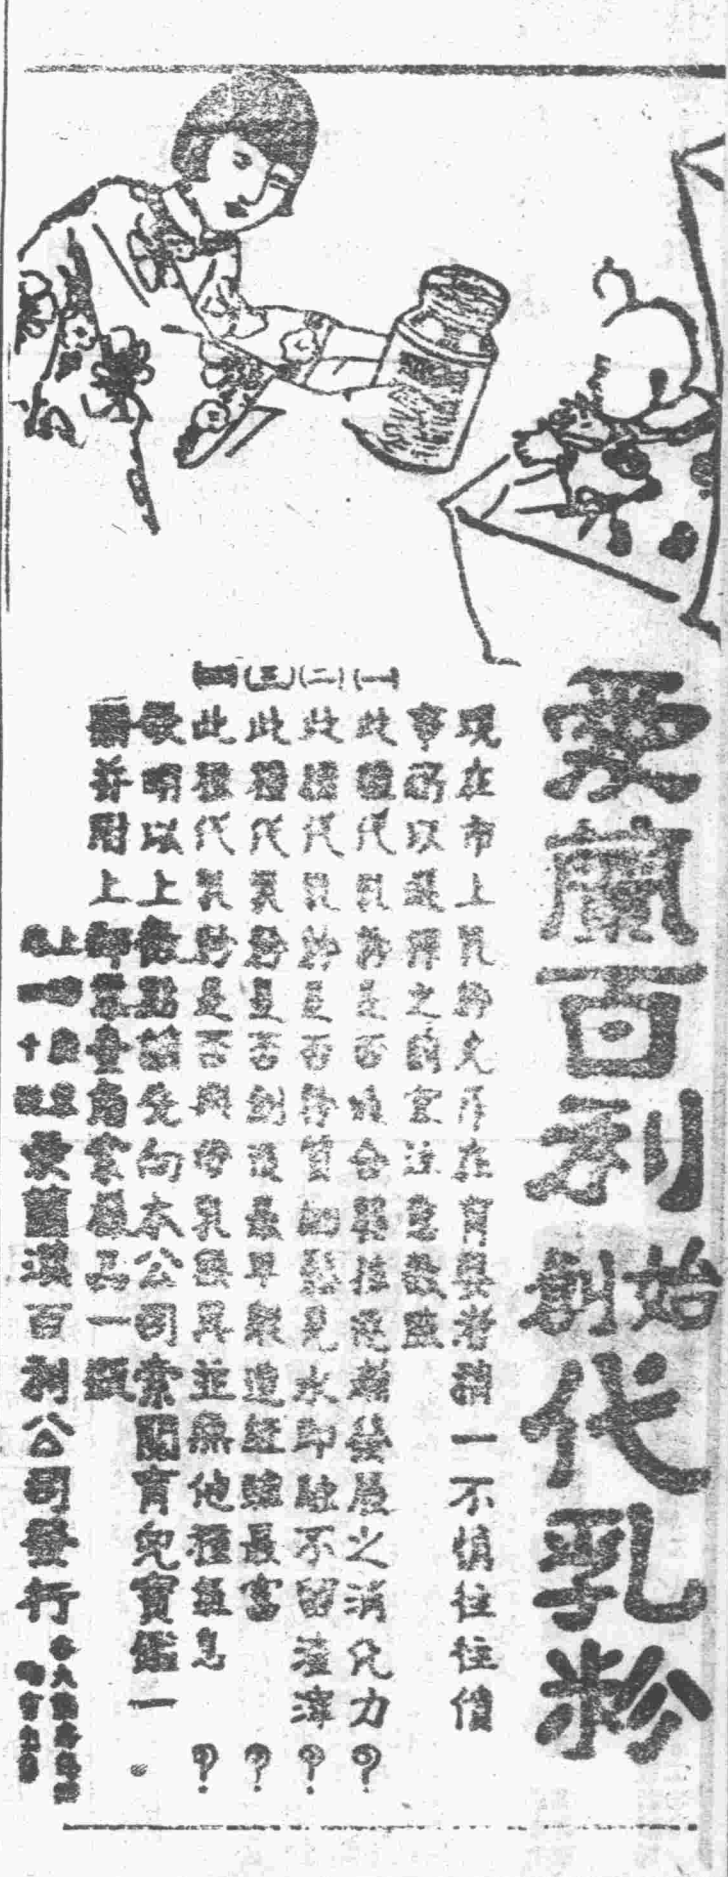 愛蘭百利
始創
代乳粉
現在市上乳粉尤再在育嬰者稍一不慎往往僨
事所以選擇之前宜注意數點
(一)此種代乳粉是否適合嬰孩逐漸發展之消化力?
(二)此種代乳粉是否粉質細鬆見水即融不留渣滓?
(三)此種代乳粉是否創設最早製造經驗最富?
此種代乳粉是否與母乳無異並無他種氣息?
敬明以上數點請先向本公司索閱育兒寶鑑一
冊并附上郵票壹角索樣品一瓶
上海
四十號
愛蘭漢百利公司發行
各大藥房
均有出售